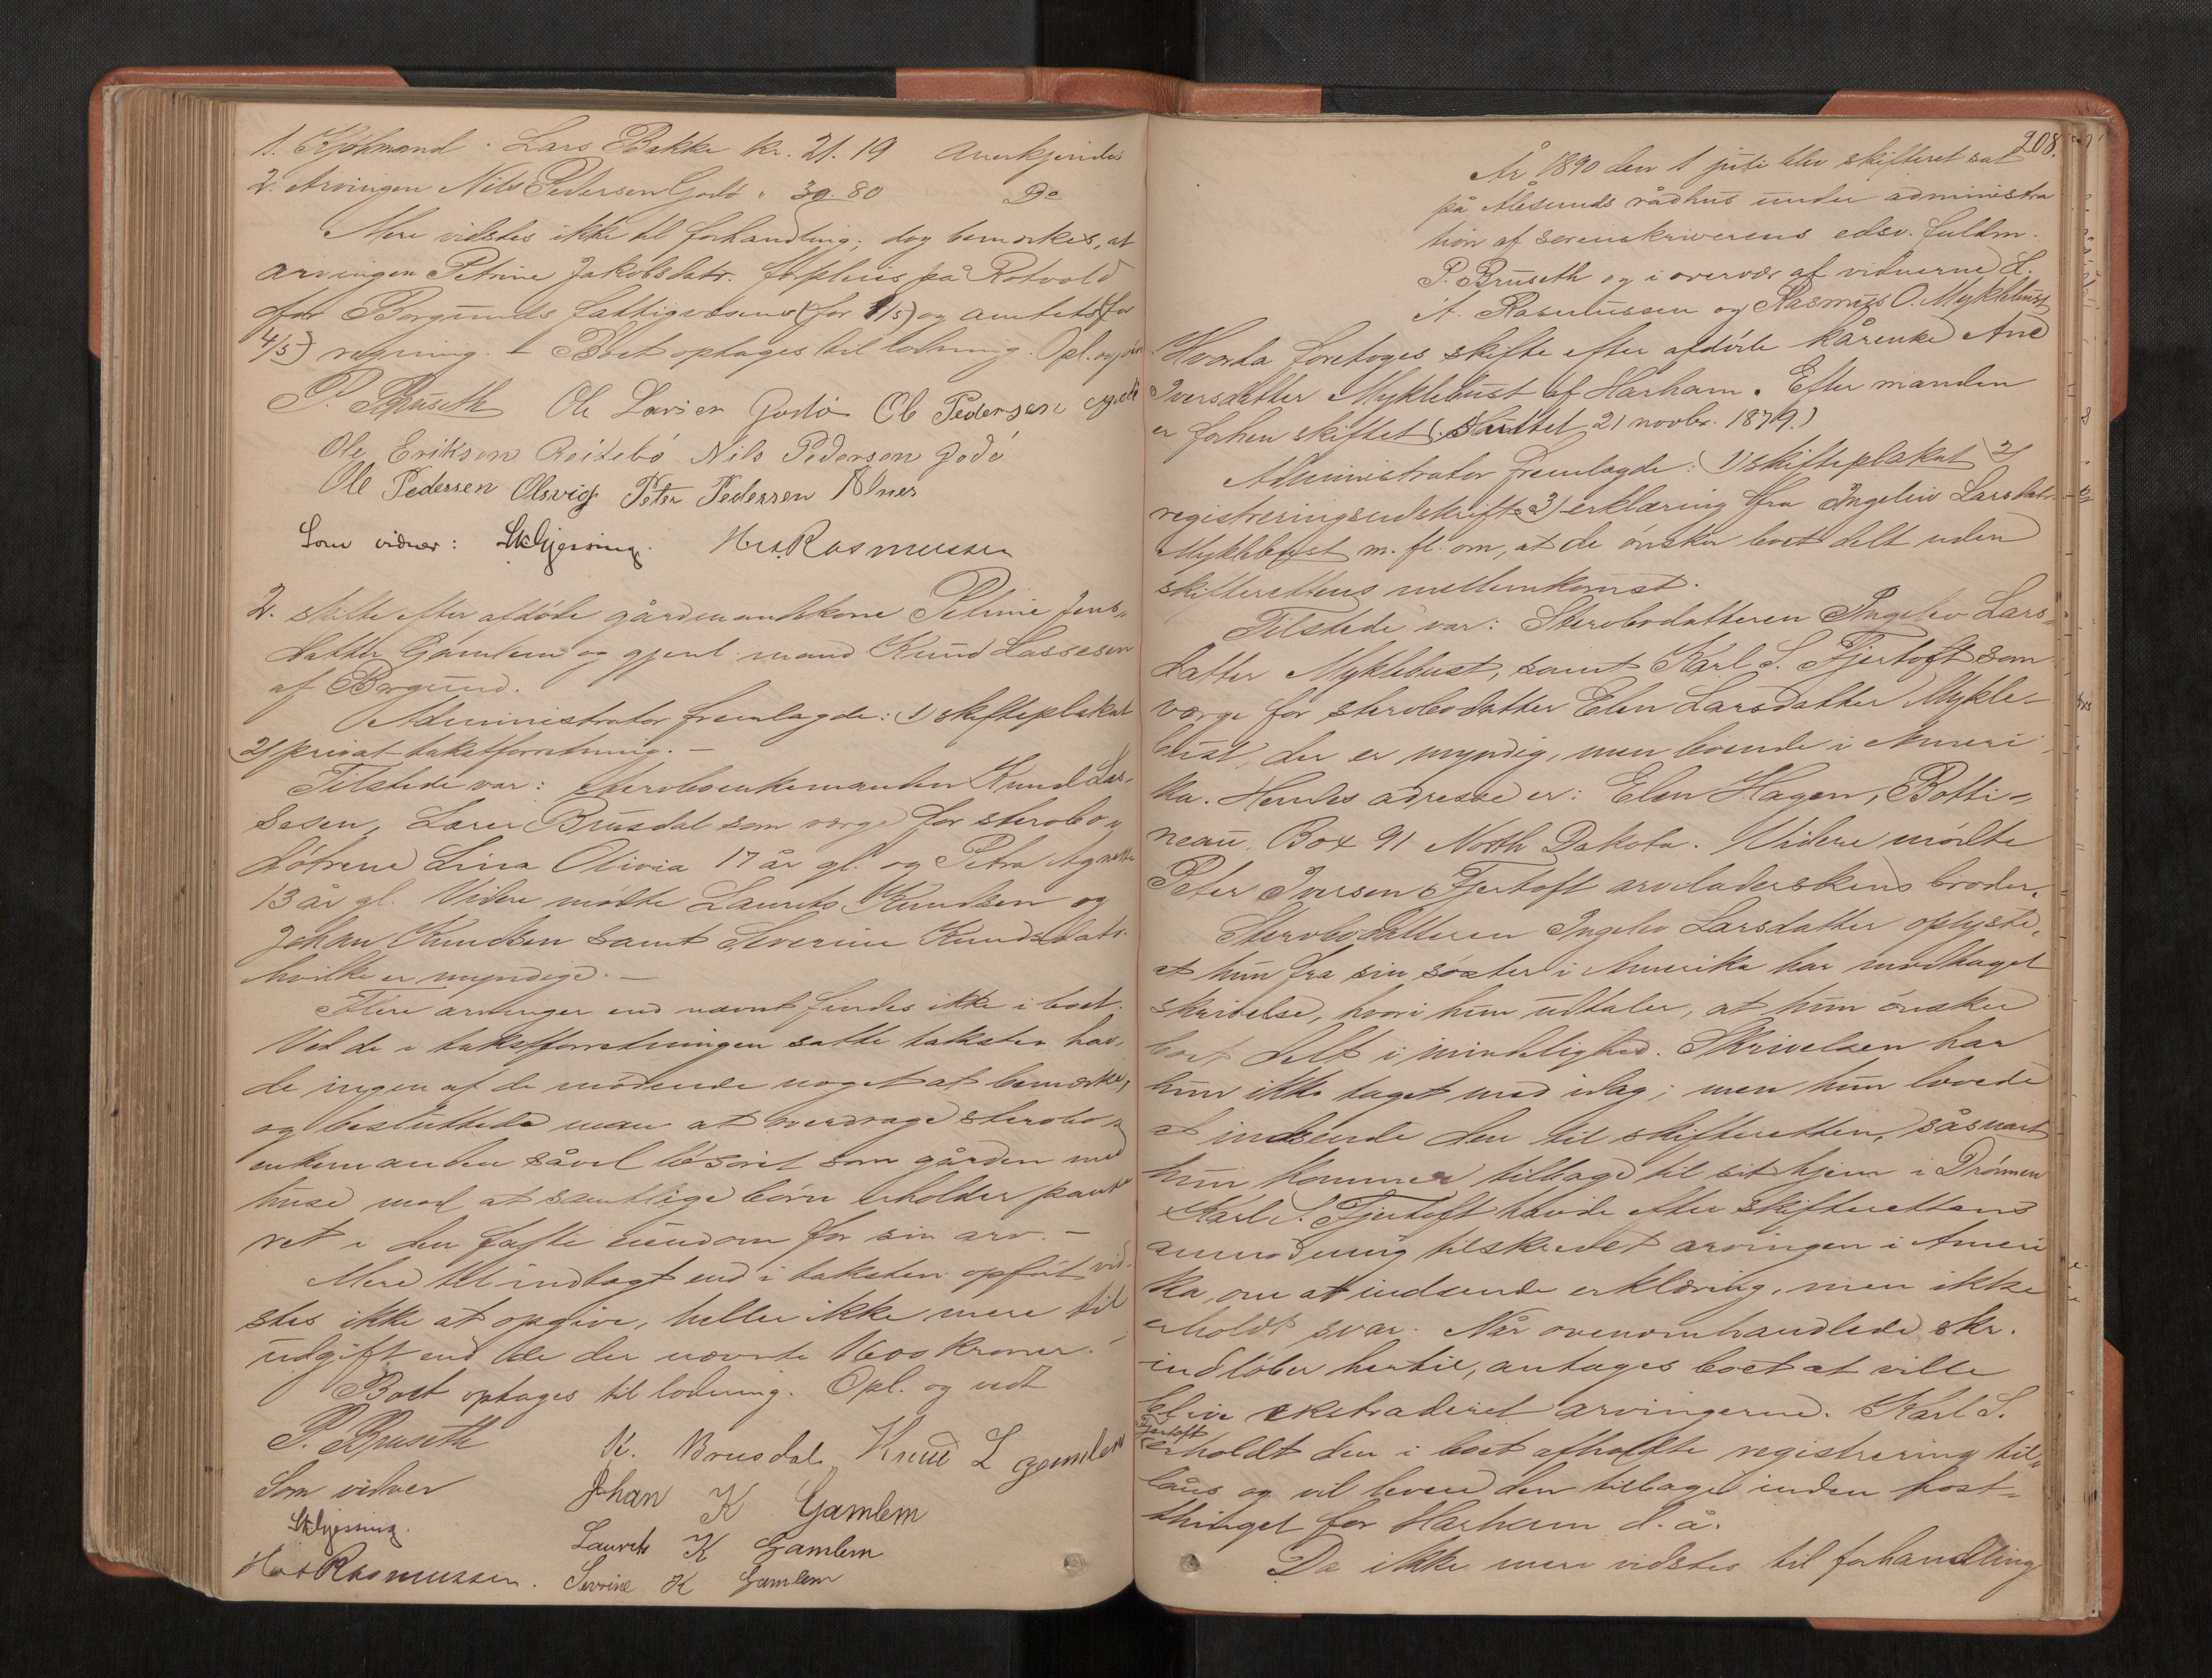 1. Kjøbmand Lars Bakke kr. 21.19 Anerkjendes
2. Arvingen Nils Pedersen Godø " 39.80 Do
Mere vidstes ikke til forhandling; dog bemærkes, at
arvingen Petrine Jakobsdatr. forpleies på Rotvold
for Borgunds fattigvæsens (for 1/5) og amtets (for
4/5) regning. – Boet optages til lodning. Opl. og
P. Bruseth Ole Larsen Godø Ole Pedersen
Ole Eriksen Reitebø Nils Pedersen Godø
Ole Pedersen Olsvig Peter Pedersen Alnes
Som vidner: Hes. Rasmussen
2. skifte efter afdøde gårdmandskone Petrine Jens-
datter Gamlem og gjenl. mand Knud Lassesen
af Borgund.
Administrator fremlagde: 1) skifteplakat
2) privat takstforretning. –
Tilstede var: Stervboenkemanden Knud Las-
sesen, Lærer Brusdal som værge for stervbo-
døtrene Lina Olivia 17 år gl. og Petra Agnethe
13 år gl. Videre mødte Laurits Knudsen og
Johan Knudsen samt Severine Knudsdatr.
hvilke er myndige. –
Flere arvinger end nævnt findes ikke i boet.
Ved de i takstforretningen satte takster hav-
de ingen af de mødende noget at bemærke,
og besluttede man at overdrage stervbo-
enkemanden såvel løsøret som gården med
huse mod at samtlige børn erholder pante
ret i den faste eiendom for sin arv. –
Mere til indtægt end i taksten opført vid-
stes ikke at opgive, heller ikke mere til
udgift end de der nævnte 1600 kroner. –
Boet optages til lodning. Opl. og vedt
P. Bruseth K. Brusdal Knud L Gamlem
Som vidner Johan K Gamlem
Laurits K Gamlem
Hes Rasmussen. Serine K Gamlem
208.
År 1890 den 1 juli blev skifteret sat
på Ålesunds rådhus under administra
tion af sorenskriverens edsv. fuldm.
P. Bruseth og i overvær af vidnerne H.
A. Rasmussen og Rasmus O. Myklebust
Hvorda foretoges skifte efter afdøde kårenke Ane
Iversdatter Myklebust af Harham. Efter manden
er forhen skiftet (Sluttet 21 novbr. 1879.)
Administrator fremlagde: 1) skifteplakat 2)
registreringsudskrift 3) erklæring fra Ingeliv Larsdatr.
Myklebust m. fl. om, at de ønsker boet delt uden
skifterettens mellemkomst.
Tilstede var: Stervbodatteren Ingeliv Lars-
datter Myklebust, samt Karl S. Fjertoft som
værge for stervbodatter Elen Larsdatter Mykle-
bust, der er myndig, men boende i Ameri
ka. Hendes adresse er: Elen Hagen, Botti-
neau, Box 91 North Dakota. Videre mødte
Peter Iversen Fjertoft arveladerskens broder.
Stervbodatteren Ingeliv Larsdatter oplyste,
at hun fra sin søster i Amerika har modtaget
skrivelse, hvori hun udtaler, at hun ønsker
boet delt i mindelighed. Skrivelsen har
hun ikke taget med idag; men hun lovede
at indsende den til skifteretten, såsnart
hun kommer tilbage til sit hjem i Drønnen
Karl S. Fjertoft havde efter skifterettens
anmodning tilskrevet arvingen i Ameri
ka, om at indsende erklæring, men ikke
erholdt svar. Når ovenomhandlede skr.
indløber hertil, antages boet at ville
blive ekstraderet arvingerne. Karl S.
Fjertoft
erholdt den i boet afholdte registrering til-
låns og vil levere den tilbage inden høst-
thinget for Harham d. å.
Da ikke mere vidstes til forhandling